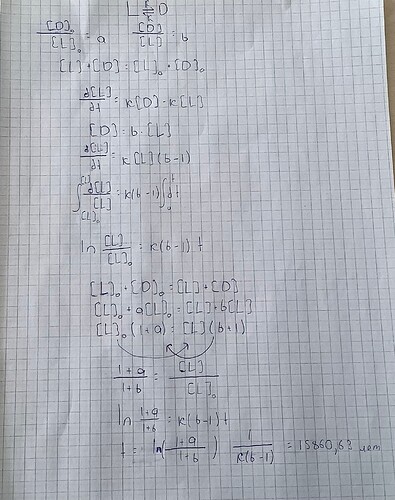 L ⇌ D
K
[D]₀/[L]₀ = a [D]/[L] = b
[L] + [D] = [L]₀ + [D]₀
d[L]/dt = K[D] - K[L]
[D] = b · [L]
d[L]/dt = K[L](b-1)
∫_{[L]₀}^{[L]} d[L]/[L] = K(b-1) ∫₀ᵗ dt
ln [L]/[L]₀ = K(b-1) t
[L]₀ + [D]₀ = [L] + [D]
[L]₀ + a[L]₀ = [L] + b[L]
[L]₀(1+a) = [L](b+1)
1+a/1+b = [L]/[L]₀
ln 1+a/1+b = K(b-1) t
t = ln(1+a/1+b) 1/K(b-1) = 15860,63 лет